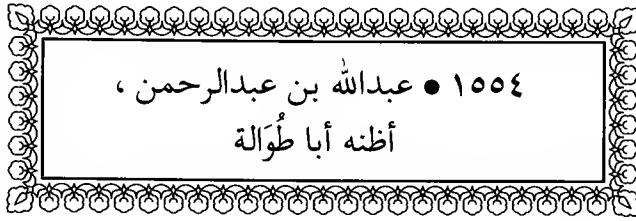 ١٥٥٤ ● عبدالله بن عبدالرحمن ،
أظنه أبا طُوَالة